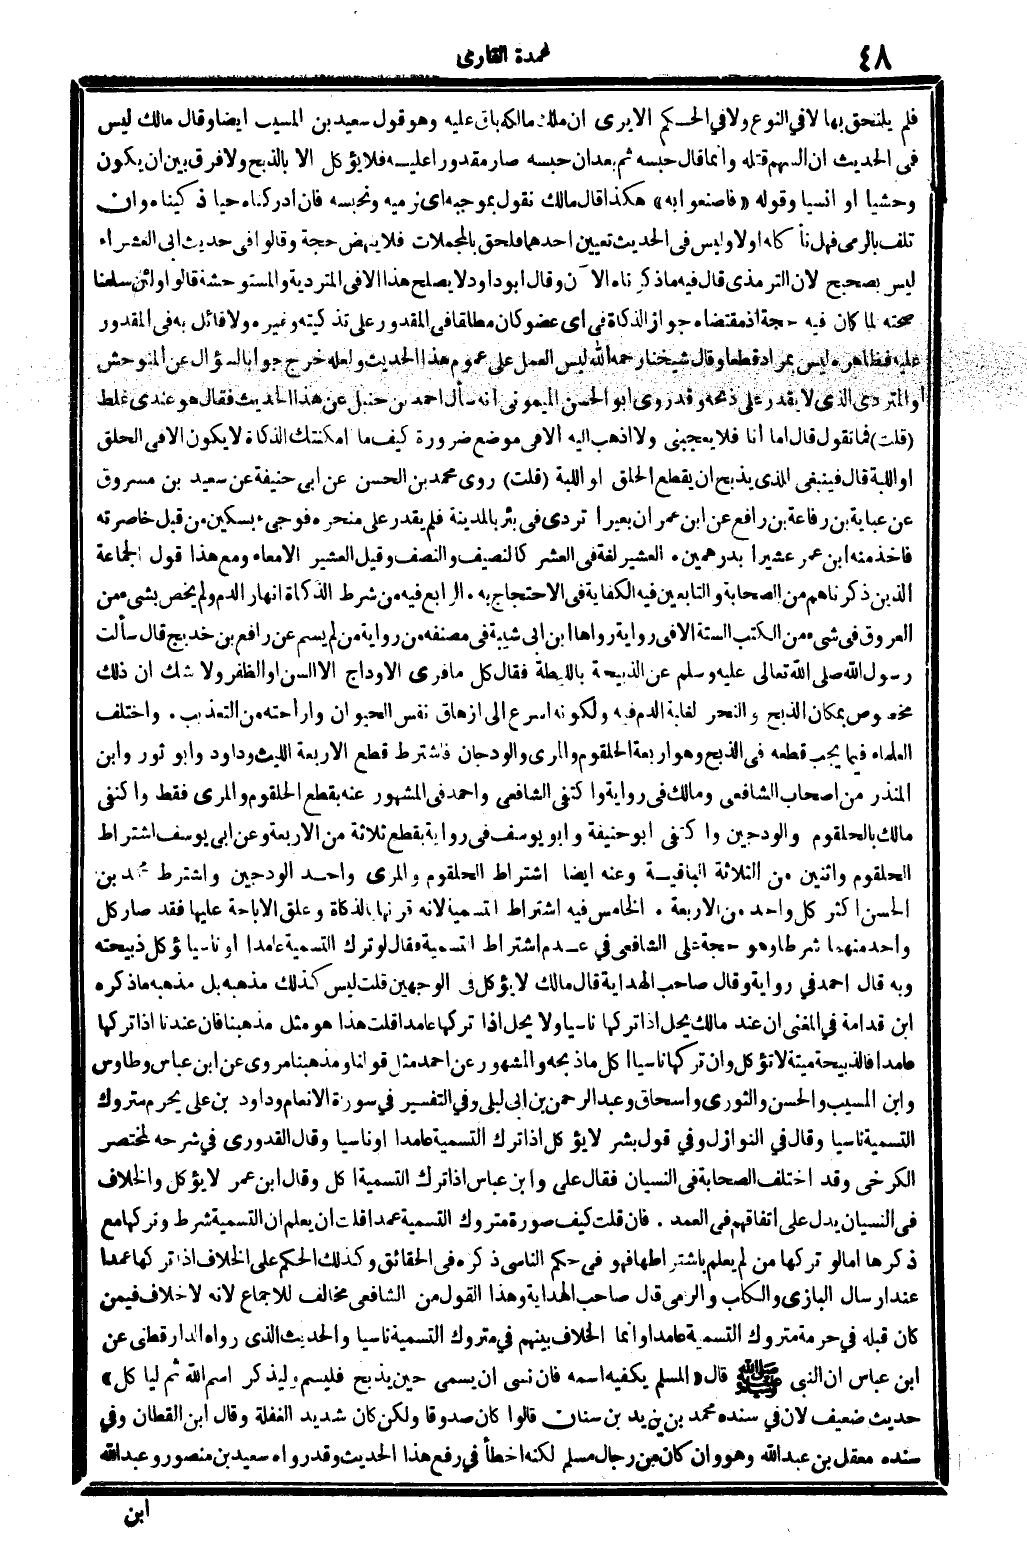 ٤٨
عمدة القارى
فلم يلتحق بها لا فى النوع ولا فى الحكم الا يرى ان ملك مالكه باق عليه وهو قول سعيد بن المسيب ايضا وقال مالك ليس
فى الحديث ان السهم قتله وانما قال حبسه ثم بعد ان حبسه صار مقدورا عليه فلا يؤكل الا بالذبح ولا فرق بين ان يكون
وحشيا او انسيا وقوله «فاصنعوا به» هكذا قال مالك نقول بموجبه اى نرميه ونحبسه فان ادركناه حيا ذكيناه وان
تلف بالرمى فهل نأكله اولا وليس فى الحديث تعيين احدهما فلحق بالمجملات فلا ينهض حجة وقالوا فى حديث ابى العشراء
ليس بصحيح لان الترمذى قال فيه ماذكرناه الآن وقال ابو داود لا يصلح هذا الا فى المتردية والمستوحشة قالوا ولئن سلمنا
صحته لما كان فيه حجة اذ مقتضاه جواز الذكاة فى اى عضو كان مطلقا فى المقدور على تذكيته وغيره ولا قائل به فى المقدور
عليه فظاهره ليس بمراد قطعا وقال شيخنا رحمه الله ليس العمل على عموم هذا الحديث ولعله خرج جوابا لسؤال عن المتوحش
او المتردى الذى لا يقدر على ذبحه وقد روى ابو الحسن الميمونى انه سأل احمد بن حنبل عن هذا الحديث فقال هو عندى غلط
(قلت) فما نقول قال اما أنا فلا يعجبنى ولا اذهب اليه الا فى موضع ضرورة كيف ما امكنتك الذكاة لا يكون الا فى الحلق
او اللبة قال فينبغى للذى يذبح ان يقطع الحلق او اللبة (قلت) روى محمد بن الحسن عن ابى حنيفة عن سعيد بن مسروق
عن عباية بن رفاعة بن رافع عن ابن عمر ان بعيرا تردى فى بئر بالمدينة فلم يقدر على منحره فوجىء بسكين من قبل خاصرته
فاخذ منه ابن عمر عشيرا بدرهمين. العشير لغة فى العشر كالنصيف والنصف وقيل العشير الامعاء ومع هذا قول الجماعة
الذين ذكرناهم من الصحابة والتابعين فيه الكفاية فى الاحتجاج به. الرابع فيه من شرط الذكاة انهار الدم ولم يخص بشىء من
العروق فى شىء من الكتب الستة الا فى رواية رواها ابن ابى شيبة فى مصنفه من رواية من لم يسم عن رافع بن خديج قال سألت
رسول الله صلى الله تعالى عليه وسلم عن الذبيحة بالليطة فقال كل مافرى الاوداج الا السن او الظفر ولا شك ان ذلك
مخصوص بمكان الذبح والنحر لغلبة الدم فيه ولكونه اسرع الى ازهاق نفس الحيوان واراحته من التعذيب. واختلف
العلماء فيما يجب قطعه فى الذبح وهو اربعة الحلقوم والمرى والودجان فاشترط قطع الاربعة الليث وداود وابو ثور وابن
المنذر من اصحاب الشافعى ومالك فى رواية واكتفى الشافعى واحمد فى المشهور عنه بقطع الحلقوم والمرى فقط واكتفى
مالك بالحلقوم والودجين واكتفى ابو حنيفة وابو يوسف فى رواية بقطع ثلاثة من الاربعة وعن ابى يوسف اشتراط
الحلقوم واثنين من الثلاثة الباقية وعنه ايضا اشتراط الحلقوم والمرى واحد الودجين واشترط محمد بن
الحسن اكثر كل واحد من الاربعة. الخامس فيه اشتراط التسمية لانه قرنها بالذكاة وعلق الاباحة عليها فقد صار كل
واحد منهما شرطا وهو حجة على الشافعى فى عدم اشتراط التسمية فقال لو ترك التسمية عامدا او ناسيا يؤكل ذبيحته
وبه قال احمد فى رواية وقال صاحب الهداية قال مالك لا يؤكل فى الوجهين قلت ليس كذلك مذهبه بل مذهبه ماذكره
ابن قدامة فى المغنى ان عند مالك يحل اذا تركها ناسيا ولا يحل اذا تركها عامدا قلت هذا هو مثل مذهبنا فان عندنا اذا تركها
عامدا فالذبيحة ميتة لا تؤكل وان تركها ناسيا اكل ماذبحه والمشهور عن احمد مثل قولنا ومذهبنا مروى عن ابن عباس وطاوس
وابن المسيب والحسن والثورى واسحاق وعبد الرحمن بن ابى ليلى وفى التفسير فى سورة الانعام وداود بن على يحرم متروك
التسمية ناسيا وقال فى النوازل وفى قول بشر لا يؤكل اذا ترك التسمية عامدا او ناسيا وقال القدورى فى شرحه لمختصر
الكرخى وقد اختلف الصحابة فى النسيان فقال على وابن عباس اذا ترك التسمية اكل وقال ابن عمر لا يؤكل والخلاف
فى النسيان يدل على اتفاقهم فى العمد. فان قلت كيف صورة متروك التسمية عمدا قلت ان يعلم ان التسمية شرط وتركها مع
ذكرها اما لو تركها من لم يعلم باشتراطها فهو فى حكم الناسى ذكره فى الحقائق وكذلك الحكم على الخلاف اذا تركها عمدا
عند ارسال البازى والكلب والرمى قال صاحب الهداية وهذا القول من الشافعى مخالف للاجماع لانه لاخلاف فيمن
كان قبله فى حرمة متروك التسمية عامدا وانما الخلاف بينهم فى متروك التسمية ناسيا والحديث الذى رواه الدارقطنى عن
ابن عباس ان النبى ﷺ قال «المسلم يكفيه اسمه فان نسى ان يسمى حين يذبح فليسم وليذكر اسم الله ثم ليأكل»
حديث ضعيف لان فى سنده محمد بن يزيد بن سنان قالوا كان صدوقا ولكن كان شديد الغفلة وقال ابن القطان وفى
سنده معقل بن عبد الله وهو وان كان من رجال مسلم لكنه اخطأ فى رفع هذا الحديث وقد رواه سعيد بن منصور وعبد الله
ابن